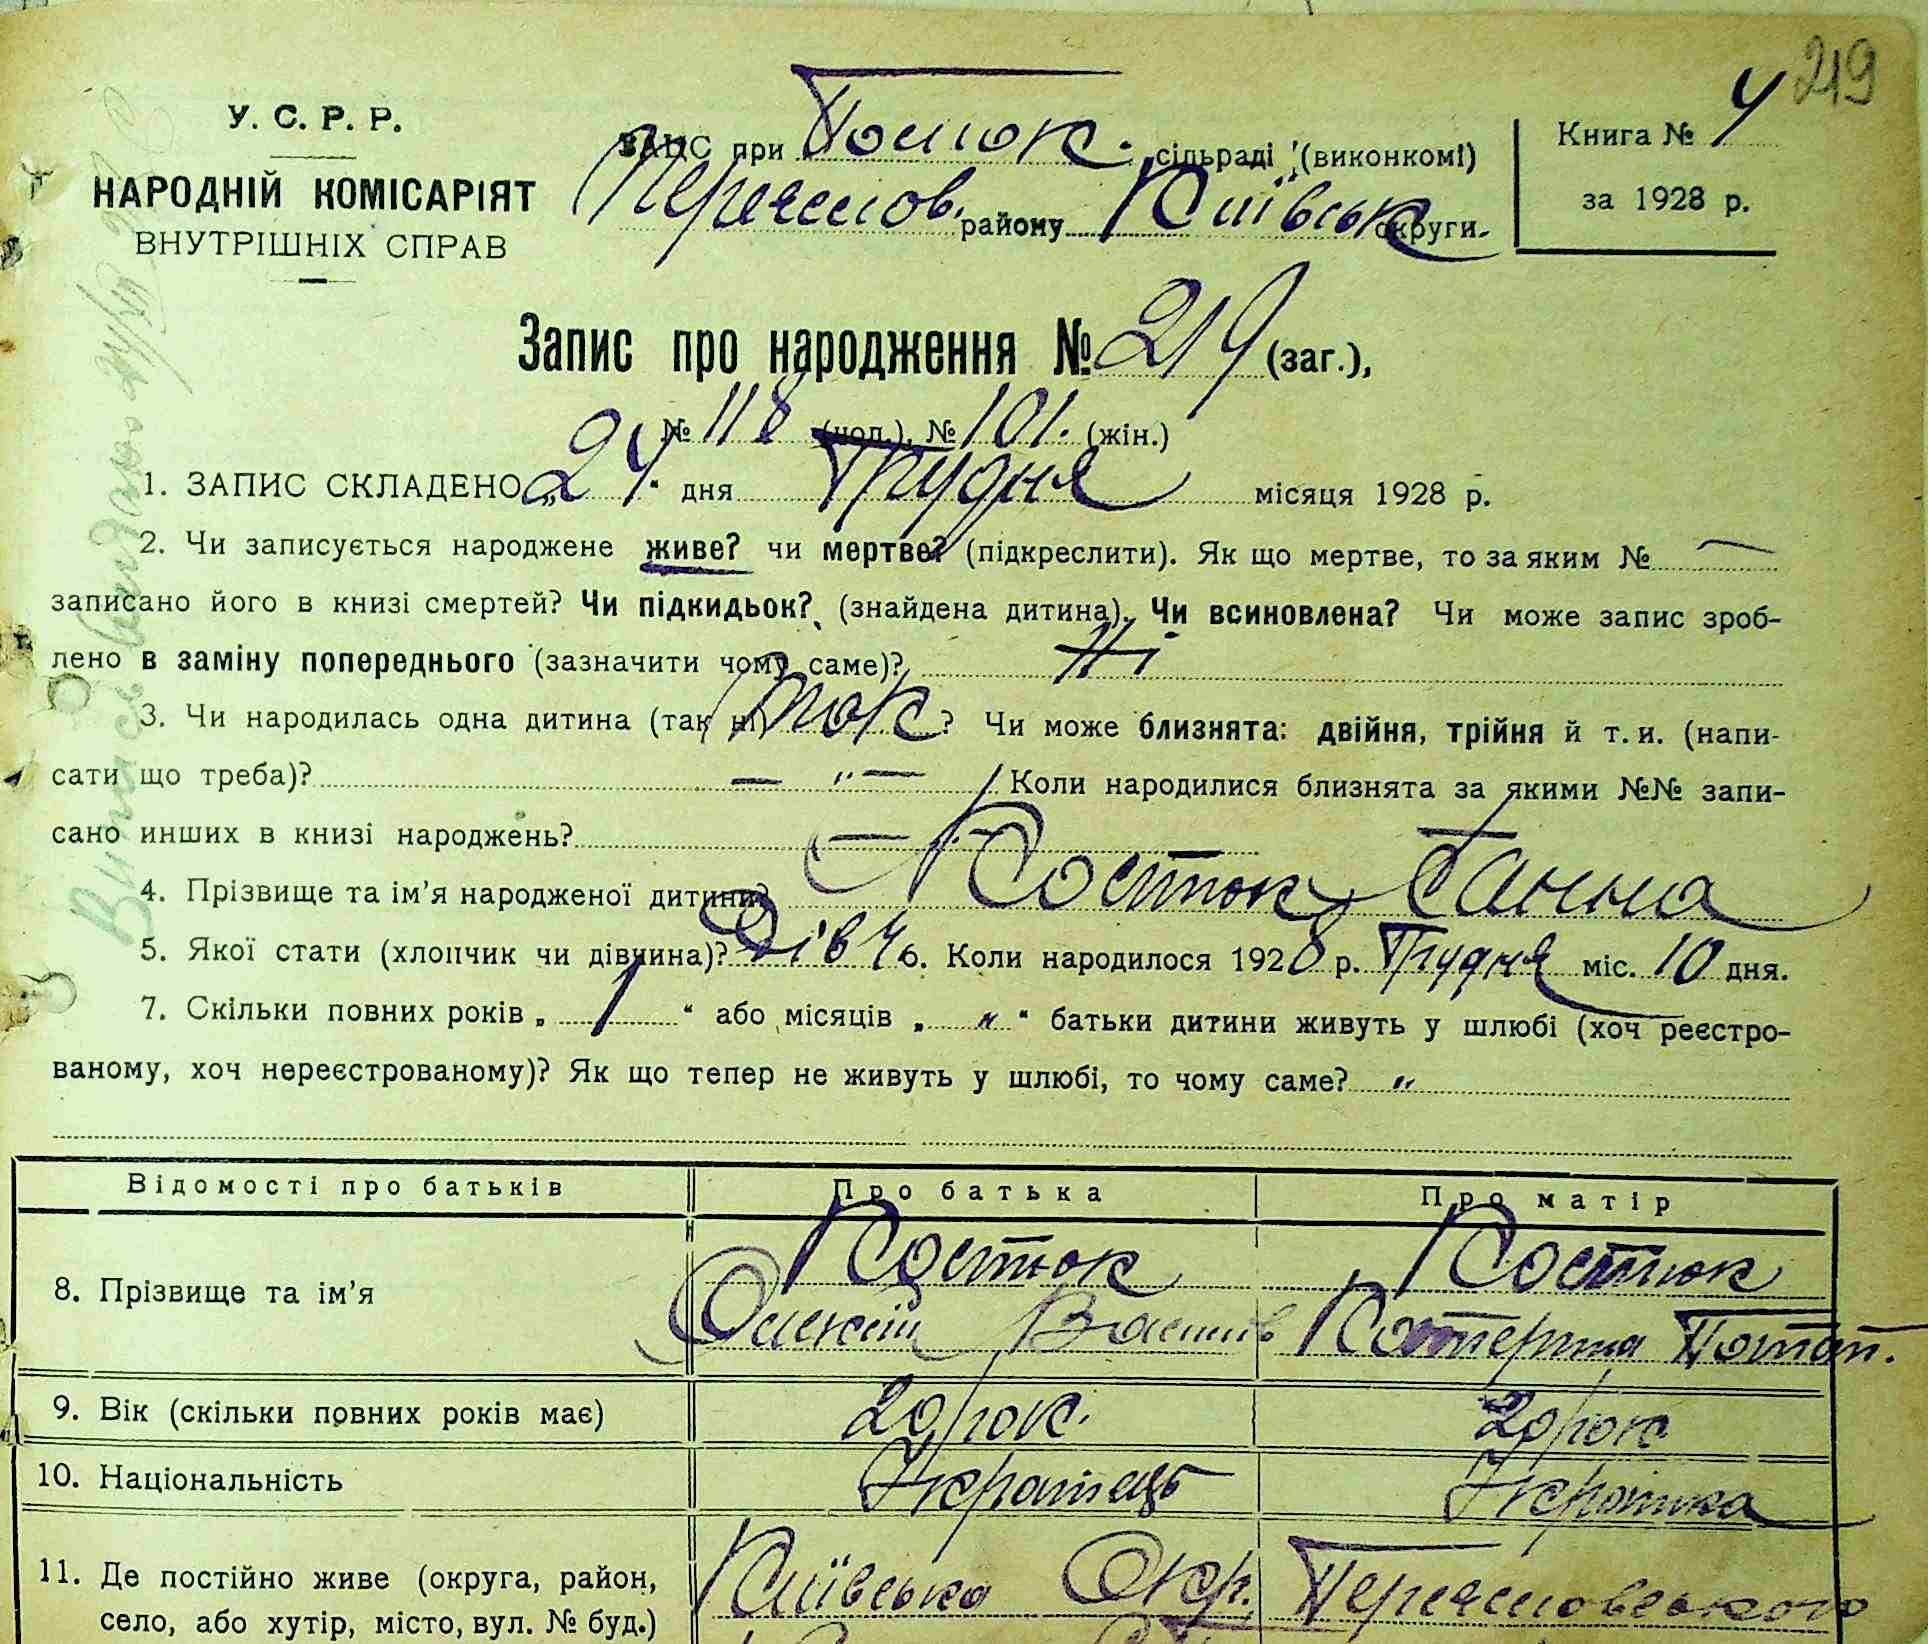 219
У. С. Р. Р.
НАРОДНІЙ КОМІСАРІЯТ
ВНУТРІШНІХ СПРАВ
ЗАЦС при сільраді (виконкомі)
району Київськ округи.
Книга № 4
за 1928 р.
Запис про народження № 219 (заг.),
№ 118 (чол.), № 101. (жін.)
1. ЗАПИС СКЛАДЕНО „24“ дня Грудня місяця 1928 р.
2. Чи записується народжене живе? чи мертве? (підкреслити). Як що мертве, то за яким № —
записано його в книзі смертей? Чи підкидьок? (знайдена дитина). Чи всиновлена? Чи може запис зроб-
лено в заміну попереднього (зазначити чому саме)? Ні
3. Чи народилась одна дитина (так, ні) Так? Чи може близнята: двійня, трійня й т. и. (напи-
сати що треба)? — „ — Коли народилися близнята за якими №№ запи-
сано инших в книзі народжень? —
4. Прізвище та ім’я народженої дитини? Костюк Ганна
5. Якої стати (хлопчик чи дівчина)? Дівч 6. Коли народилося 1928 р. Грудня міс. 10 дня.
7. Скільки повних років „ 1 “ або місяців „ „ “ батьки дитини живуть у шлюбі (хоч реєстро-
ваному, хоч нереєстрованому)? Як що тепер не живуть у шлюбі, то чому саме? „
Відомості про батьків Про батька Про матір
8. Прізвище та ім’я Костюк Костюк
Олексій Василів Катерина Потап.
9. Вік (скільки повних років має) 20 рок. 20 рок
10. Національність Українець Українка
11. Де постійно живе (округа, район, Київська Окр.
село, або хутір, місто, вул. № буд.)